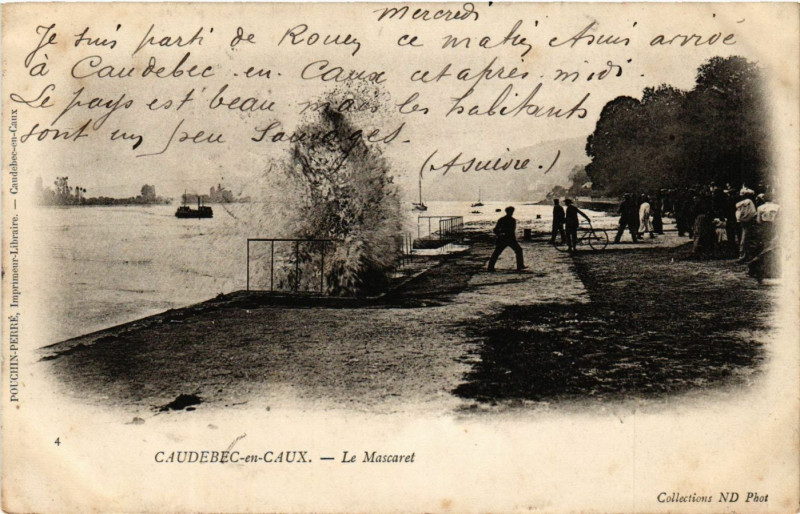 Mercredi
Je suis parti de Rouen ce matin et suis arrivé
à Caudebec-en-Caux cet après-midi.
Le pays est beau mais les habitants
sont un peu sauvages.
(A suivre.)
POUCHIN-PERRÉ, Imprimeur-Libraire. — Caudebec-en-Caux
4
CAUDEBEC-en-CAUX. — Le Mascaret
Collections ND Phot